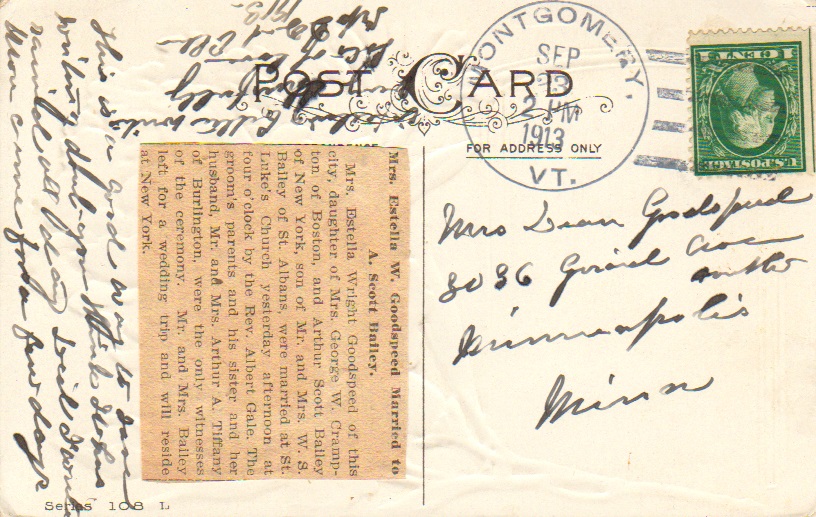 POST CARD
FOR ADDRESS ONLY
MONTGOMERY,
SEP
2 PM
1913
VT.
1 CENT 1
U.S. POSTAGE
Mrs Dean Goodspeed
3036 Girard Ave
south
Minneapolis
Minn
Mrs. Estella W. Goodspeed Married to
A. Scott Bailey.
Mrs. Estella Wright Goodspeed of this
city, daughter of Mrs. George W. Cramp-
ton of Boston, and Arthur Scott Bailey
of New York, son of Mr. and Mrs. W. S.
Bailey of St. Albans, were married at St.
Luke's Church yesterday afternoon at
four o'clock by the Rev. Albert Gale. The
groom's parents and his sister and her
husband, Mr. and Mrs. Arthur A. Tiffany
of Burlington, were the only witnesses
of the ceremony. Mr. and Mrs. Bailey
left for a wedding trip and will reside
at New York.
This is a good way to save
writing don't you think
down home for a few days
Series 108 L